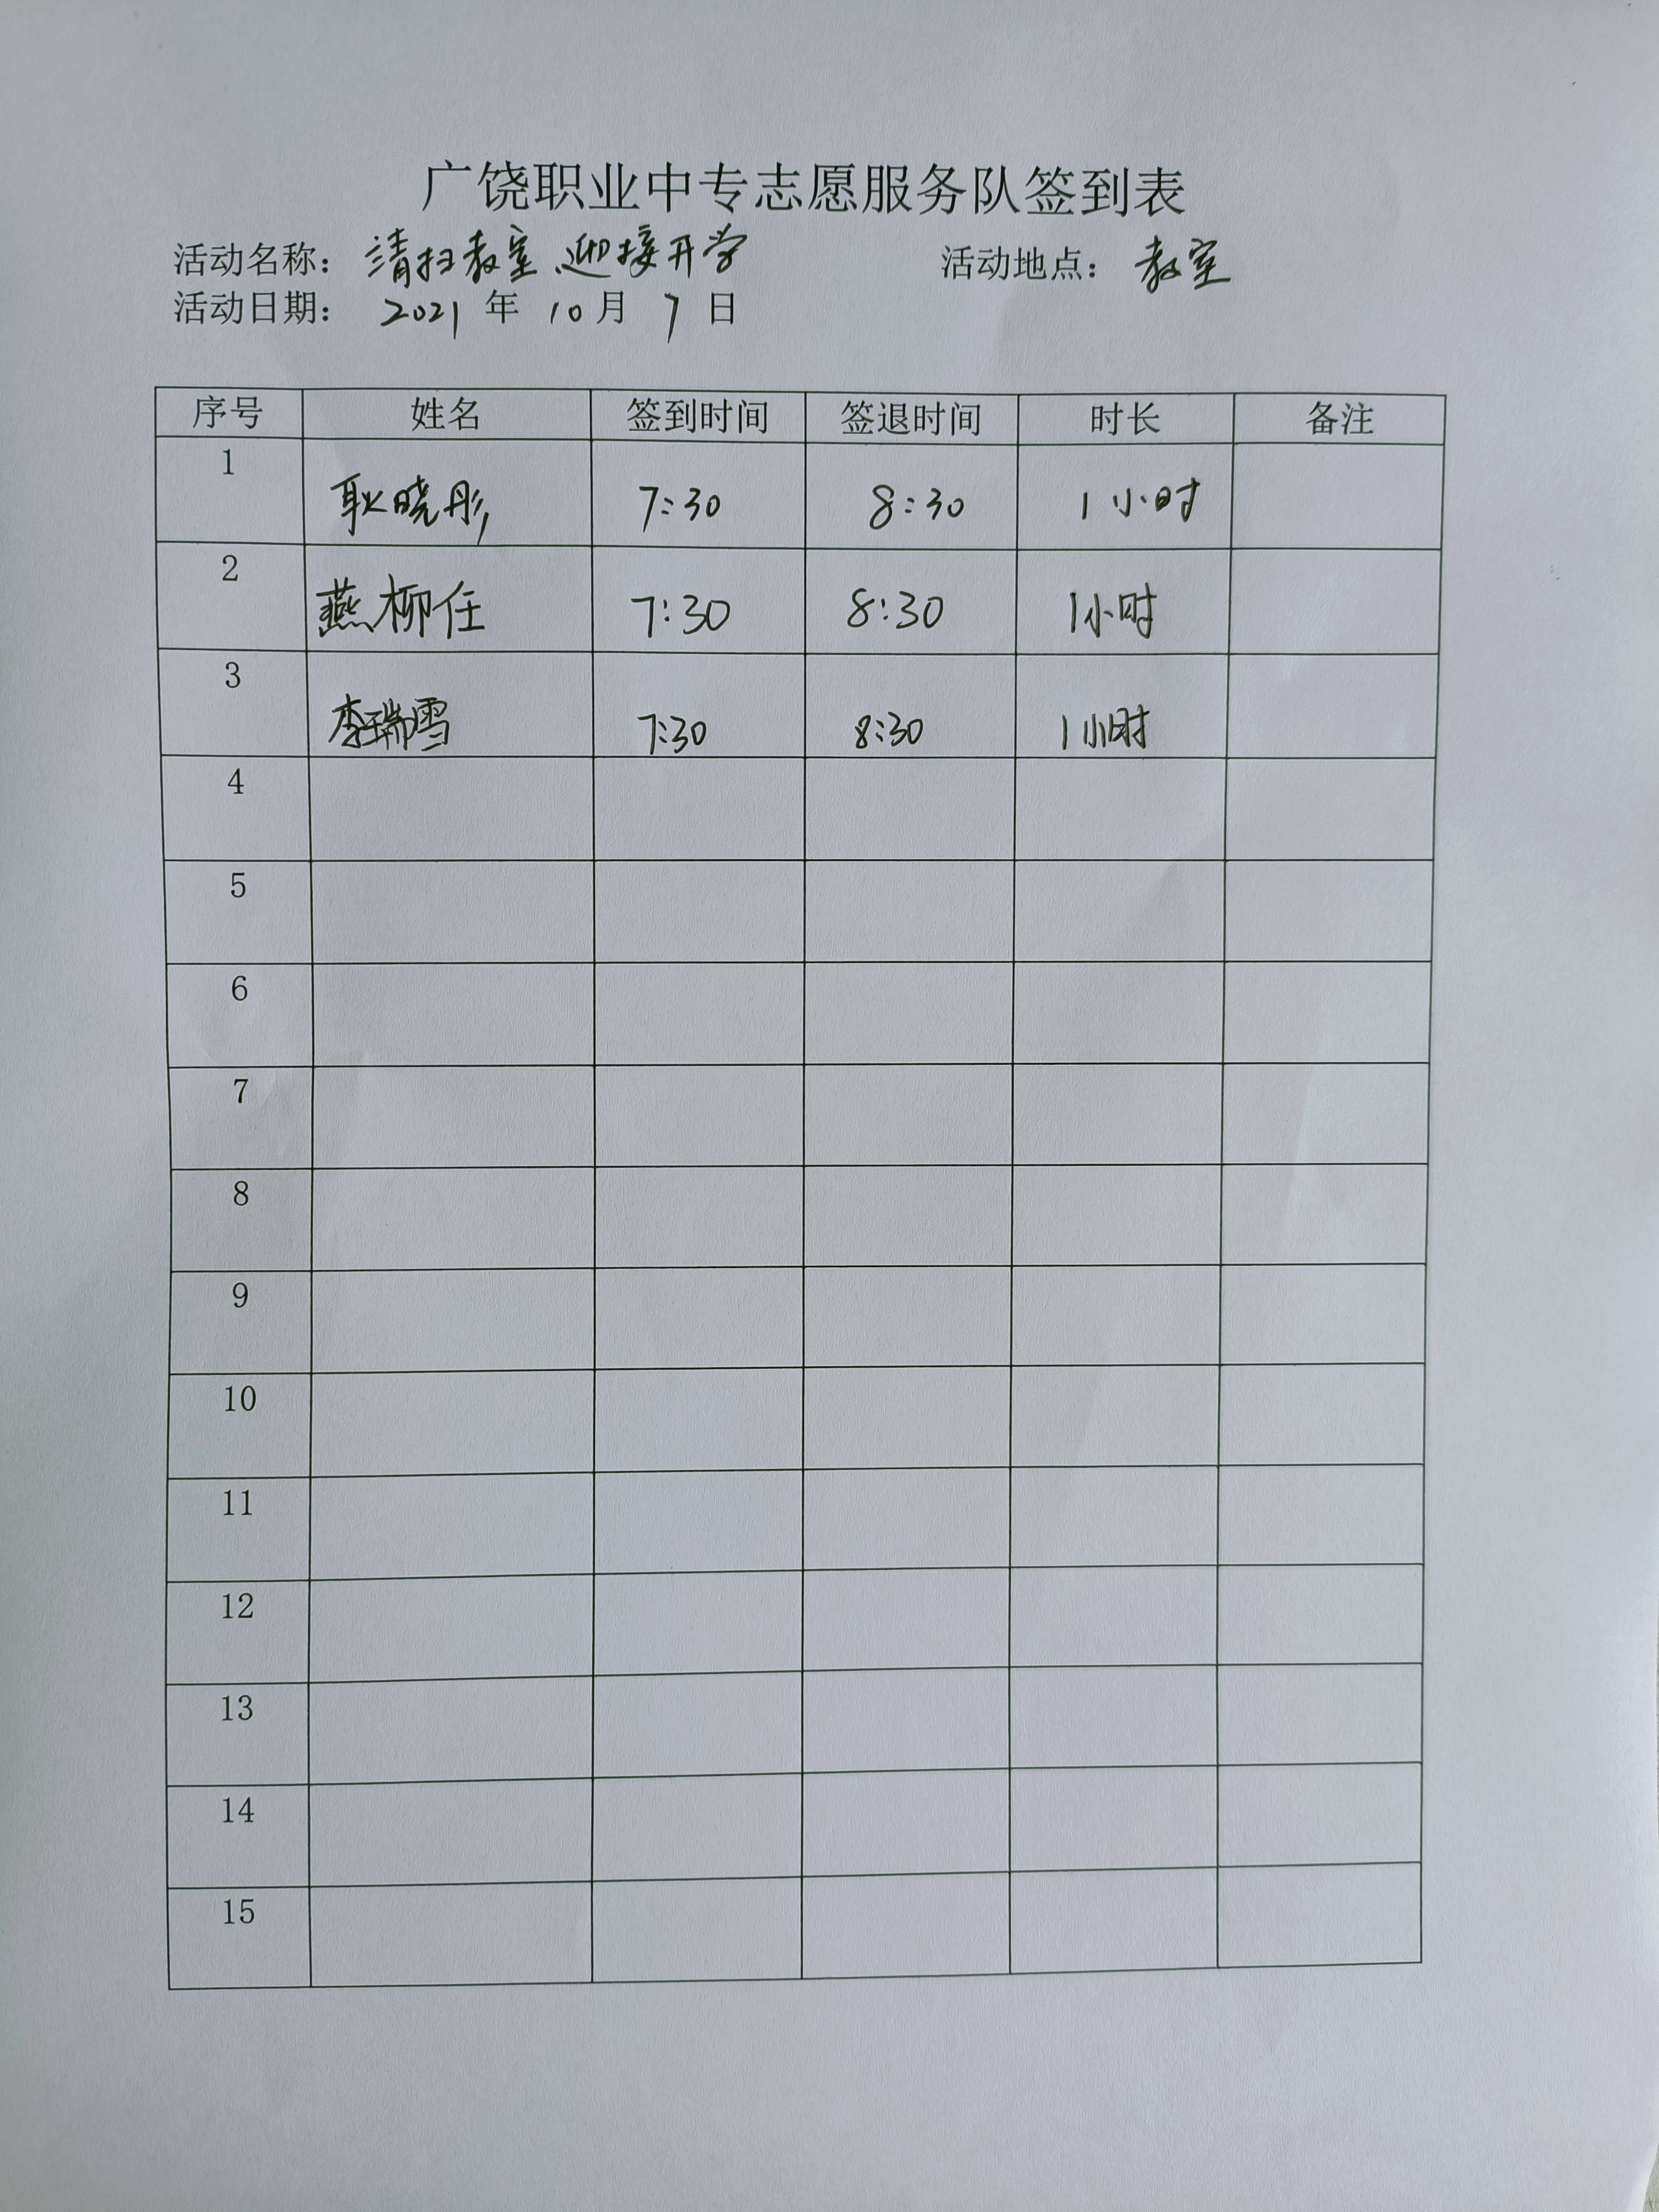 广饶职业中专志愿服务队签到表
活动名称： 清扫教室、迎接开学 活动地点： 教室
活动日期： 2021 年 10 月 7 日
序号 姓名 签到时间 签退时间 时长 备注
1 耿晓彤 7:30 8:30 1小时
2 燕柳任 7:30 8:30 1小时
3 李瑞雪 7:30 8:30 1小时
4
5
6
7
8
9
10
11
12
13
14
15